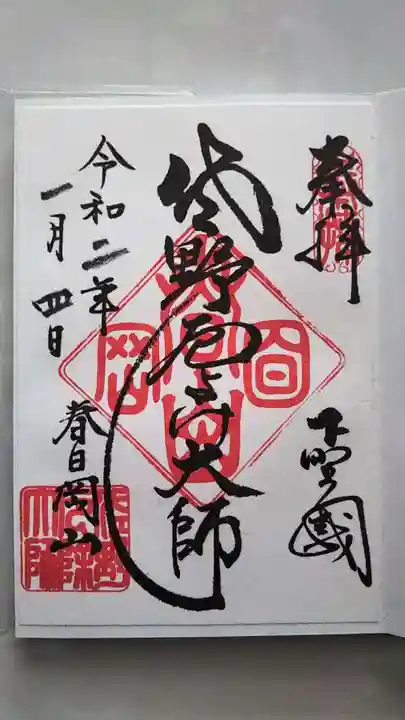 奉拝
下野國
佐野厄よけ大師
令和二年
一月四日
春日岡山